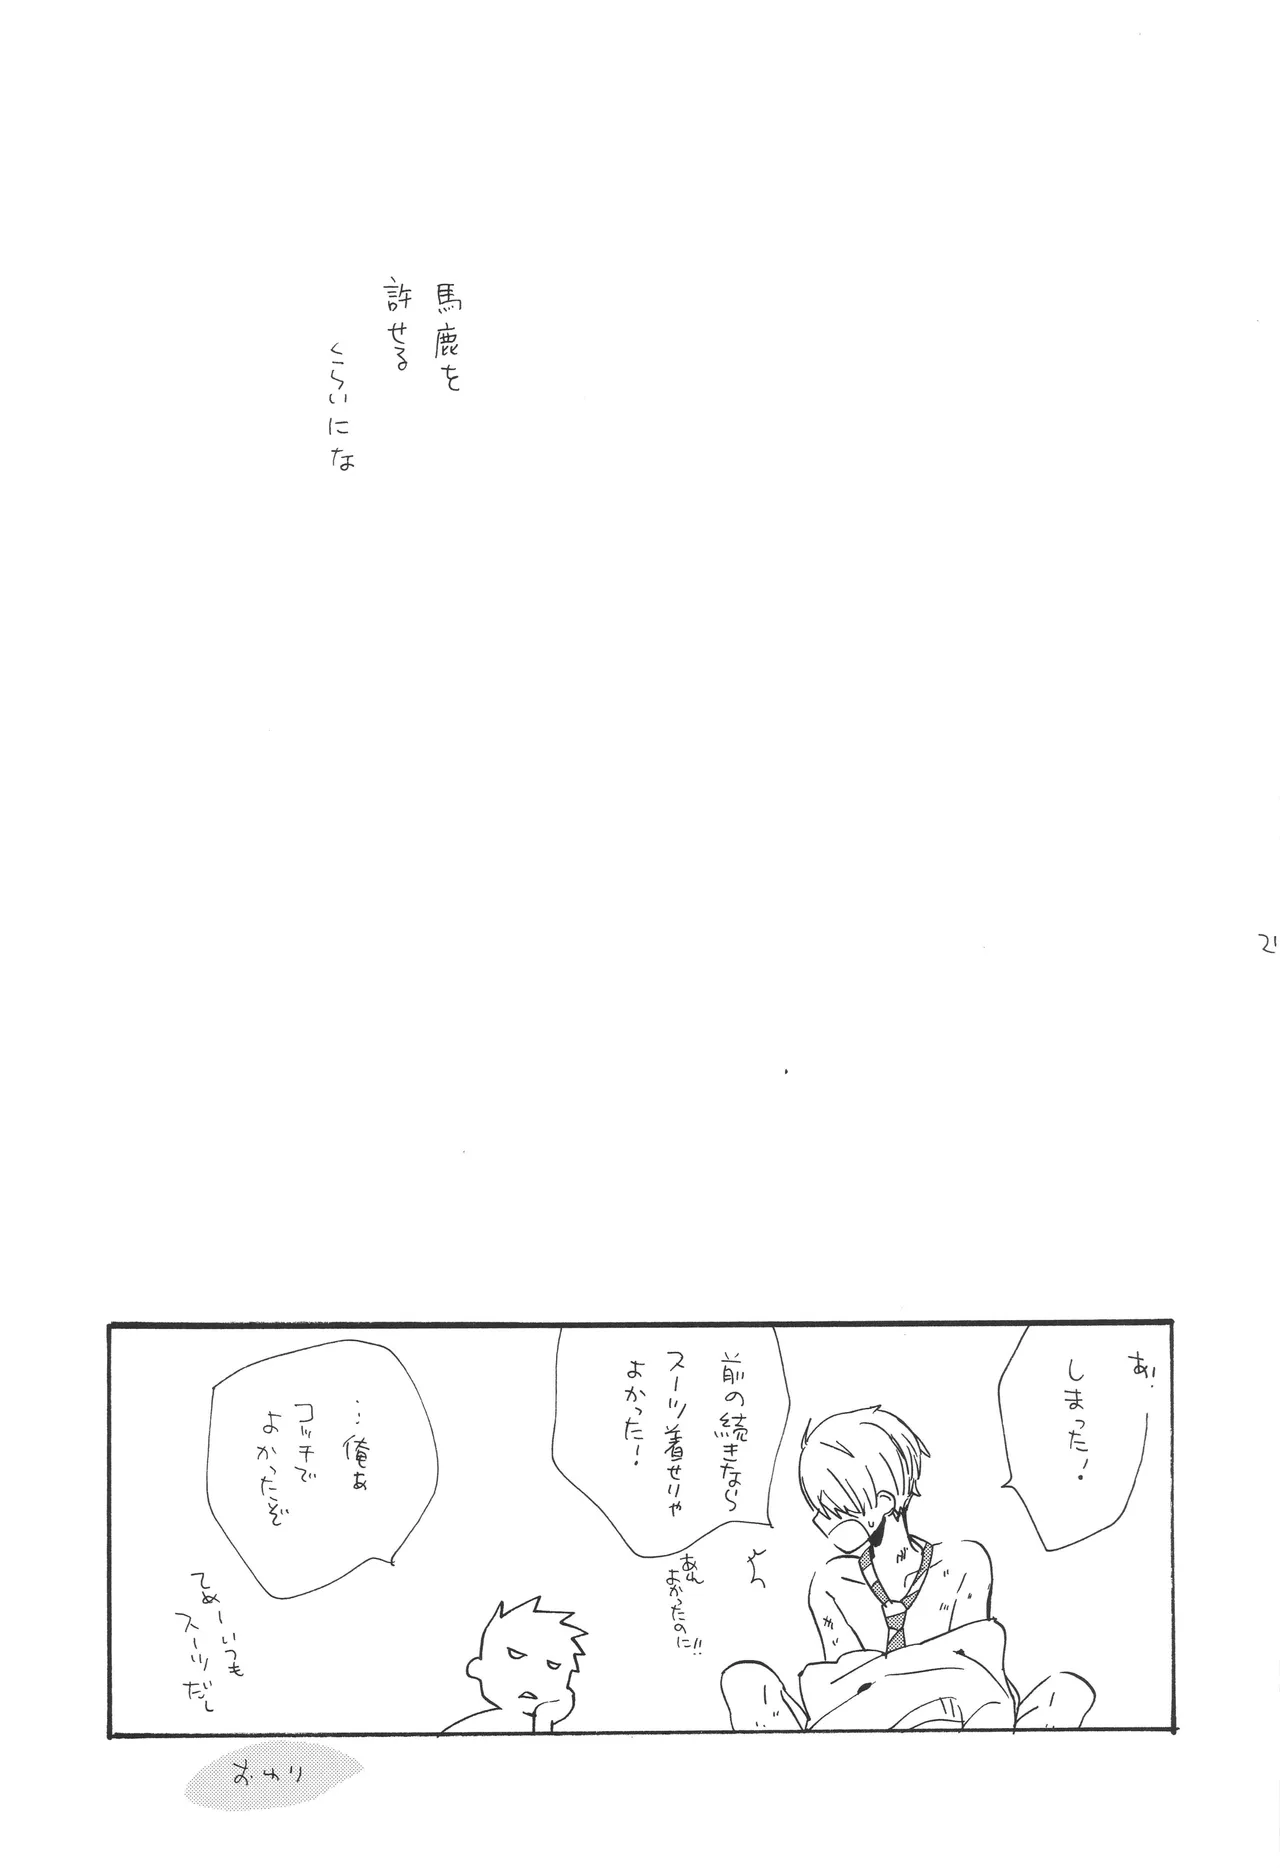 馬鹿を
許せる
くらいにな
21
あ!
しまった!
前の続きなら
スーツ着せりゃ
よかった!
あれ
よかったのに!!
…俺あ
コッチで
よかったぞ
てめーいつも
スーツだし
おわり